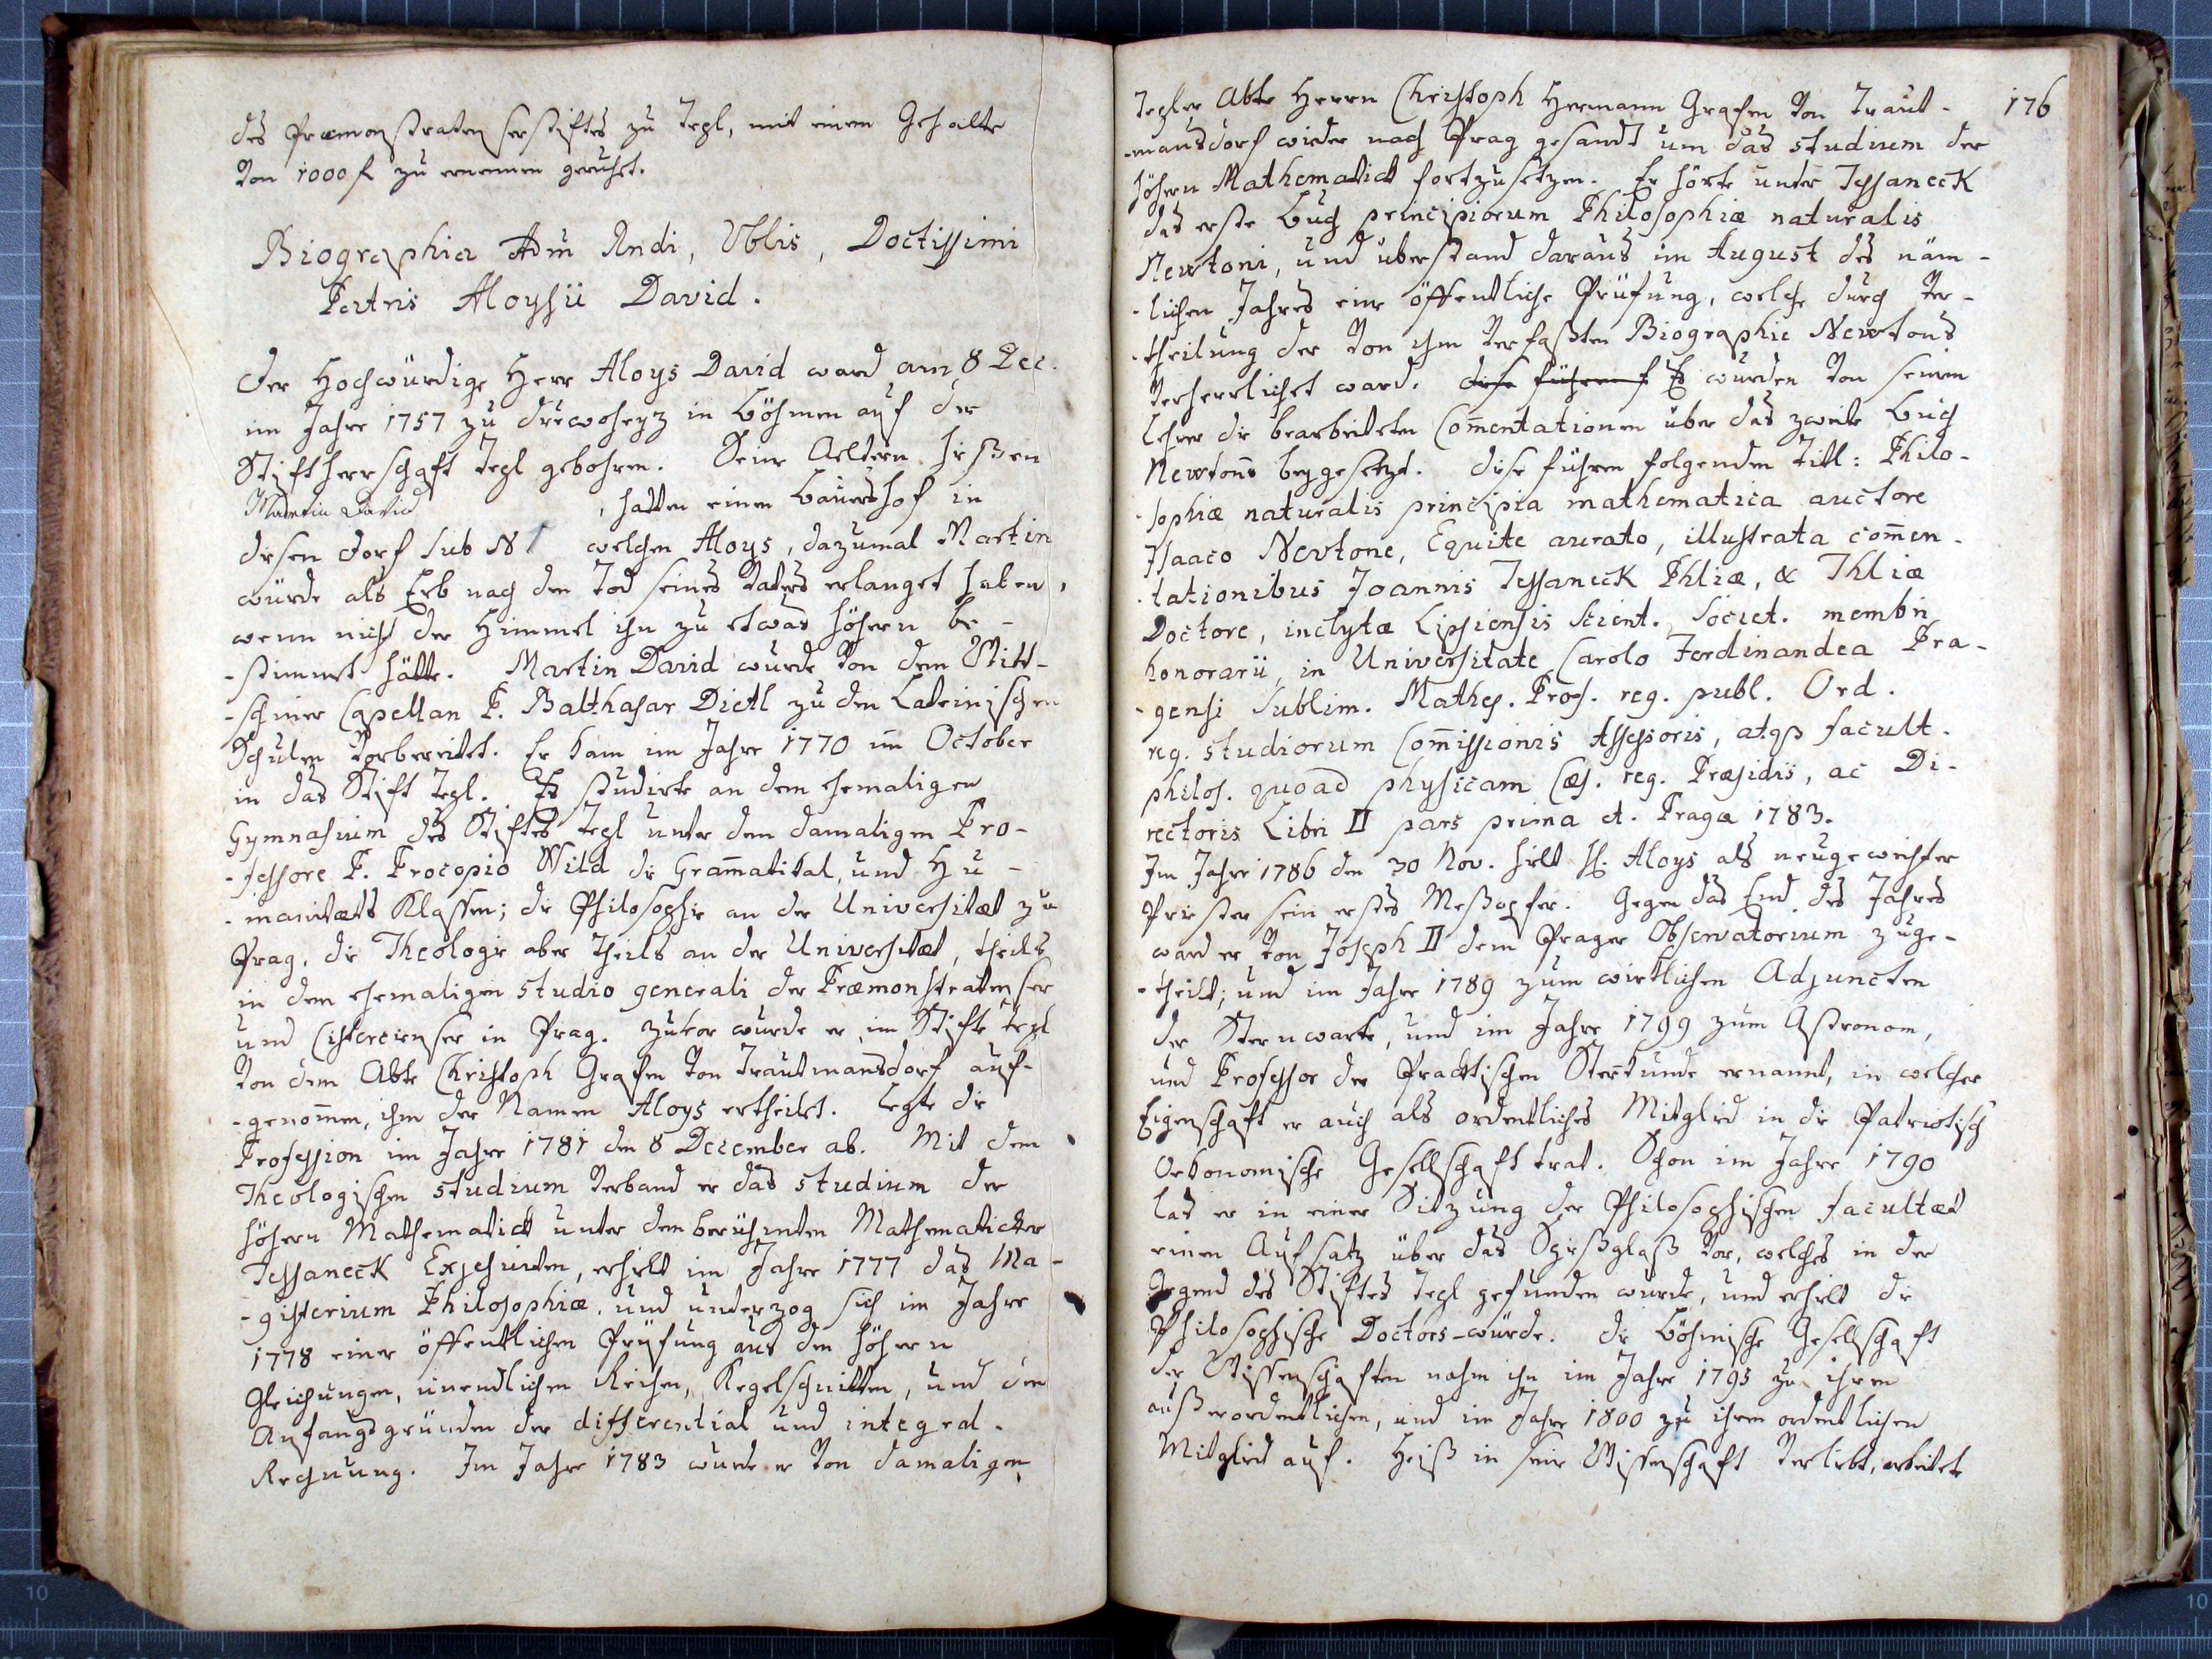 des Præmonstratenserstiftes zu Tepl, mit einem Gehalte
von 1000 f zu ernennen geruhet.
Biographia Adm̄ Rndi, Vblis, Doctissimi
Patris Aloysii David.
Der Hochwürdige Herr Aloys David ward am 8 Dec.
im Jahre 1757 zu Drewoheyz in Böhmen auf der
Stiftherrschaft Tepl gebohren. Seine Aeltern hießen
Martin David , hatten einen Bauershof in
diesen Dorf sub N 1 welchen Aloys, dazumal Martin
würde als Erb nach den Tod seines Vaters erlanget haben,
wenn nicht der Himmel ihn zu etwas höhern be-
-stimmet hätte. Martin David wurde von dem Witt-
-schiner Capellan P. Balthasar Dietl zu den Lateinischen
Schulen vorbereitet. Er kam im Jahre 1770 im October
in das Stift Tepl. Er studirte an dem ehemaligen
Gymnasium des Stiftes Tepl unter dem damaligen Pro-
-fessore P. Procopio Wild die Gram̄atikal, und Hu-
-manitæts Klassen; die Philosophie an der Universitæt zu
Prag, die Theologie aber theils an der Universitæt, theils
in dem ehemaligen studio generali der Præmonstratenser
und Cistercienser in Prag. Zuvor wurde er im Stifte Tepl
von dem Abte Christoph Grafen von Trautmansdorf auf-
-genom̄en, ihm der Namen Aloys ertheilet. Legte die
Profession im Jahre 1781 den 8 December ab. Mit dem
Theologischen studium verband er das studium der
höhern Mathematick unter dem berühmten Mathematicker
Tessaneck Exjesuiten, erhielt im Jahre 1777 das Ma-
-gisterium Philosophiæ, und unterzog sich im Jahre
1778 einer öffentlichen Prüfung aus den höhern
Gleichungen, unendlichen Reihen, Kegelschnitten, und den
Anfangsgründen der differential und integral-
Rechnung. Im Jahre 1783 wurde er von damaligen
Tepler Abte Herrn Christoph Hermann Grafen von Traut- 176
-mansdorf wieder nach Prag gesandt um das studium der
höhern Mathematick fortzusetzen. Er hörte unter Tessaneck
das erste Buch principiorum Philosophiæ naturalis
Newtoni, und überstand daraus im August des näm-
-lichen Jahres eine öffentliche Prüfung, welche durch Ver-
-theilung der von ihm verfaßten Biographie Newtons
verherrlichet ward. diese führen f Es wurden von seinem
Lehrer die bearbeiteten Com̄entationen über das zweite Buch
Newtons beygesetzt. Diese führen folgenden Titl: Philo-
-sophiæ naturalis principia mathematica auctore
Isaaco Newtone, Equite aurato, illustrata com̄en-
-tationibus Joannis Tessaneck Phliæ, & Thliæ
Doctore, inclytæ Lipsiensis Scient. Societ. membri
honorarii, in Universitate Carolo Ferdinandea Pra-
-gensi Sublim. Mathes. Prof. reg. publ. Ord.
reg. studiorum Com̄issionis Assessoris, atqs facult.
philos. quoad physicam Cæs. reg. Præsidis, ac Di-
rectoris Libri II pars prima ct. Pragæ 1783.
Im Jahre 1786 den 30 Nov. hielt H. Aloys als neugeweihter
Priester sein erstes Meßopfer. Gegen das End des Jahres
ward er von Joseph II dem Prager Observatorium zuge-
-theilt; und im Jahre 1789 zum wirklichen Adjuncten
der Sternwarte, und im Jahre 1799 zum Astronom,
und Professor der Pracktischen Sternkunde ernannt, in welcher
Eigenschaft er auch als ordentliches Mitglied in die Patriotisch
Oekonomische Gesellschaft trat. Schon im Jahre 1790
las er in einer Sitzung der Philosophischen Facultæt
einen Aufsatz über das Spießglaß vor, welches in der
Gegend des Stiftes Tepl gefunden wurde, und erhielt die
Philosophische Doctors-würde. Die Böhmische Gesellschaft
der Wissenschaften nahm ihn im Jahre 1795 zu ihren
außerordentlichen, und im Jahre 1800 zu ihren ordentlichen
Mitglied auf. Heiß in seine Wissenschaft verliebt, arbeitete